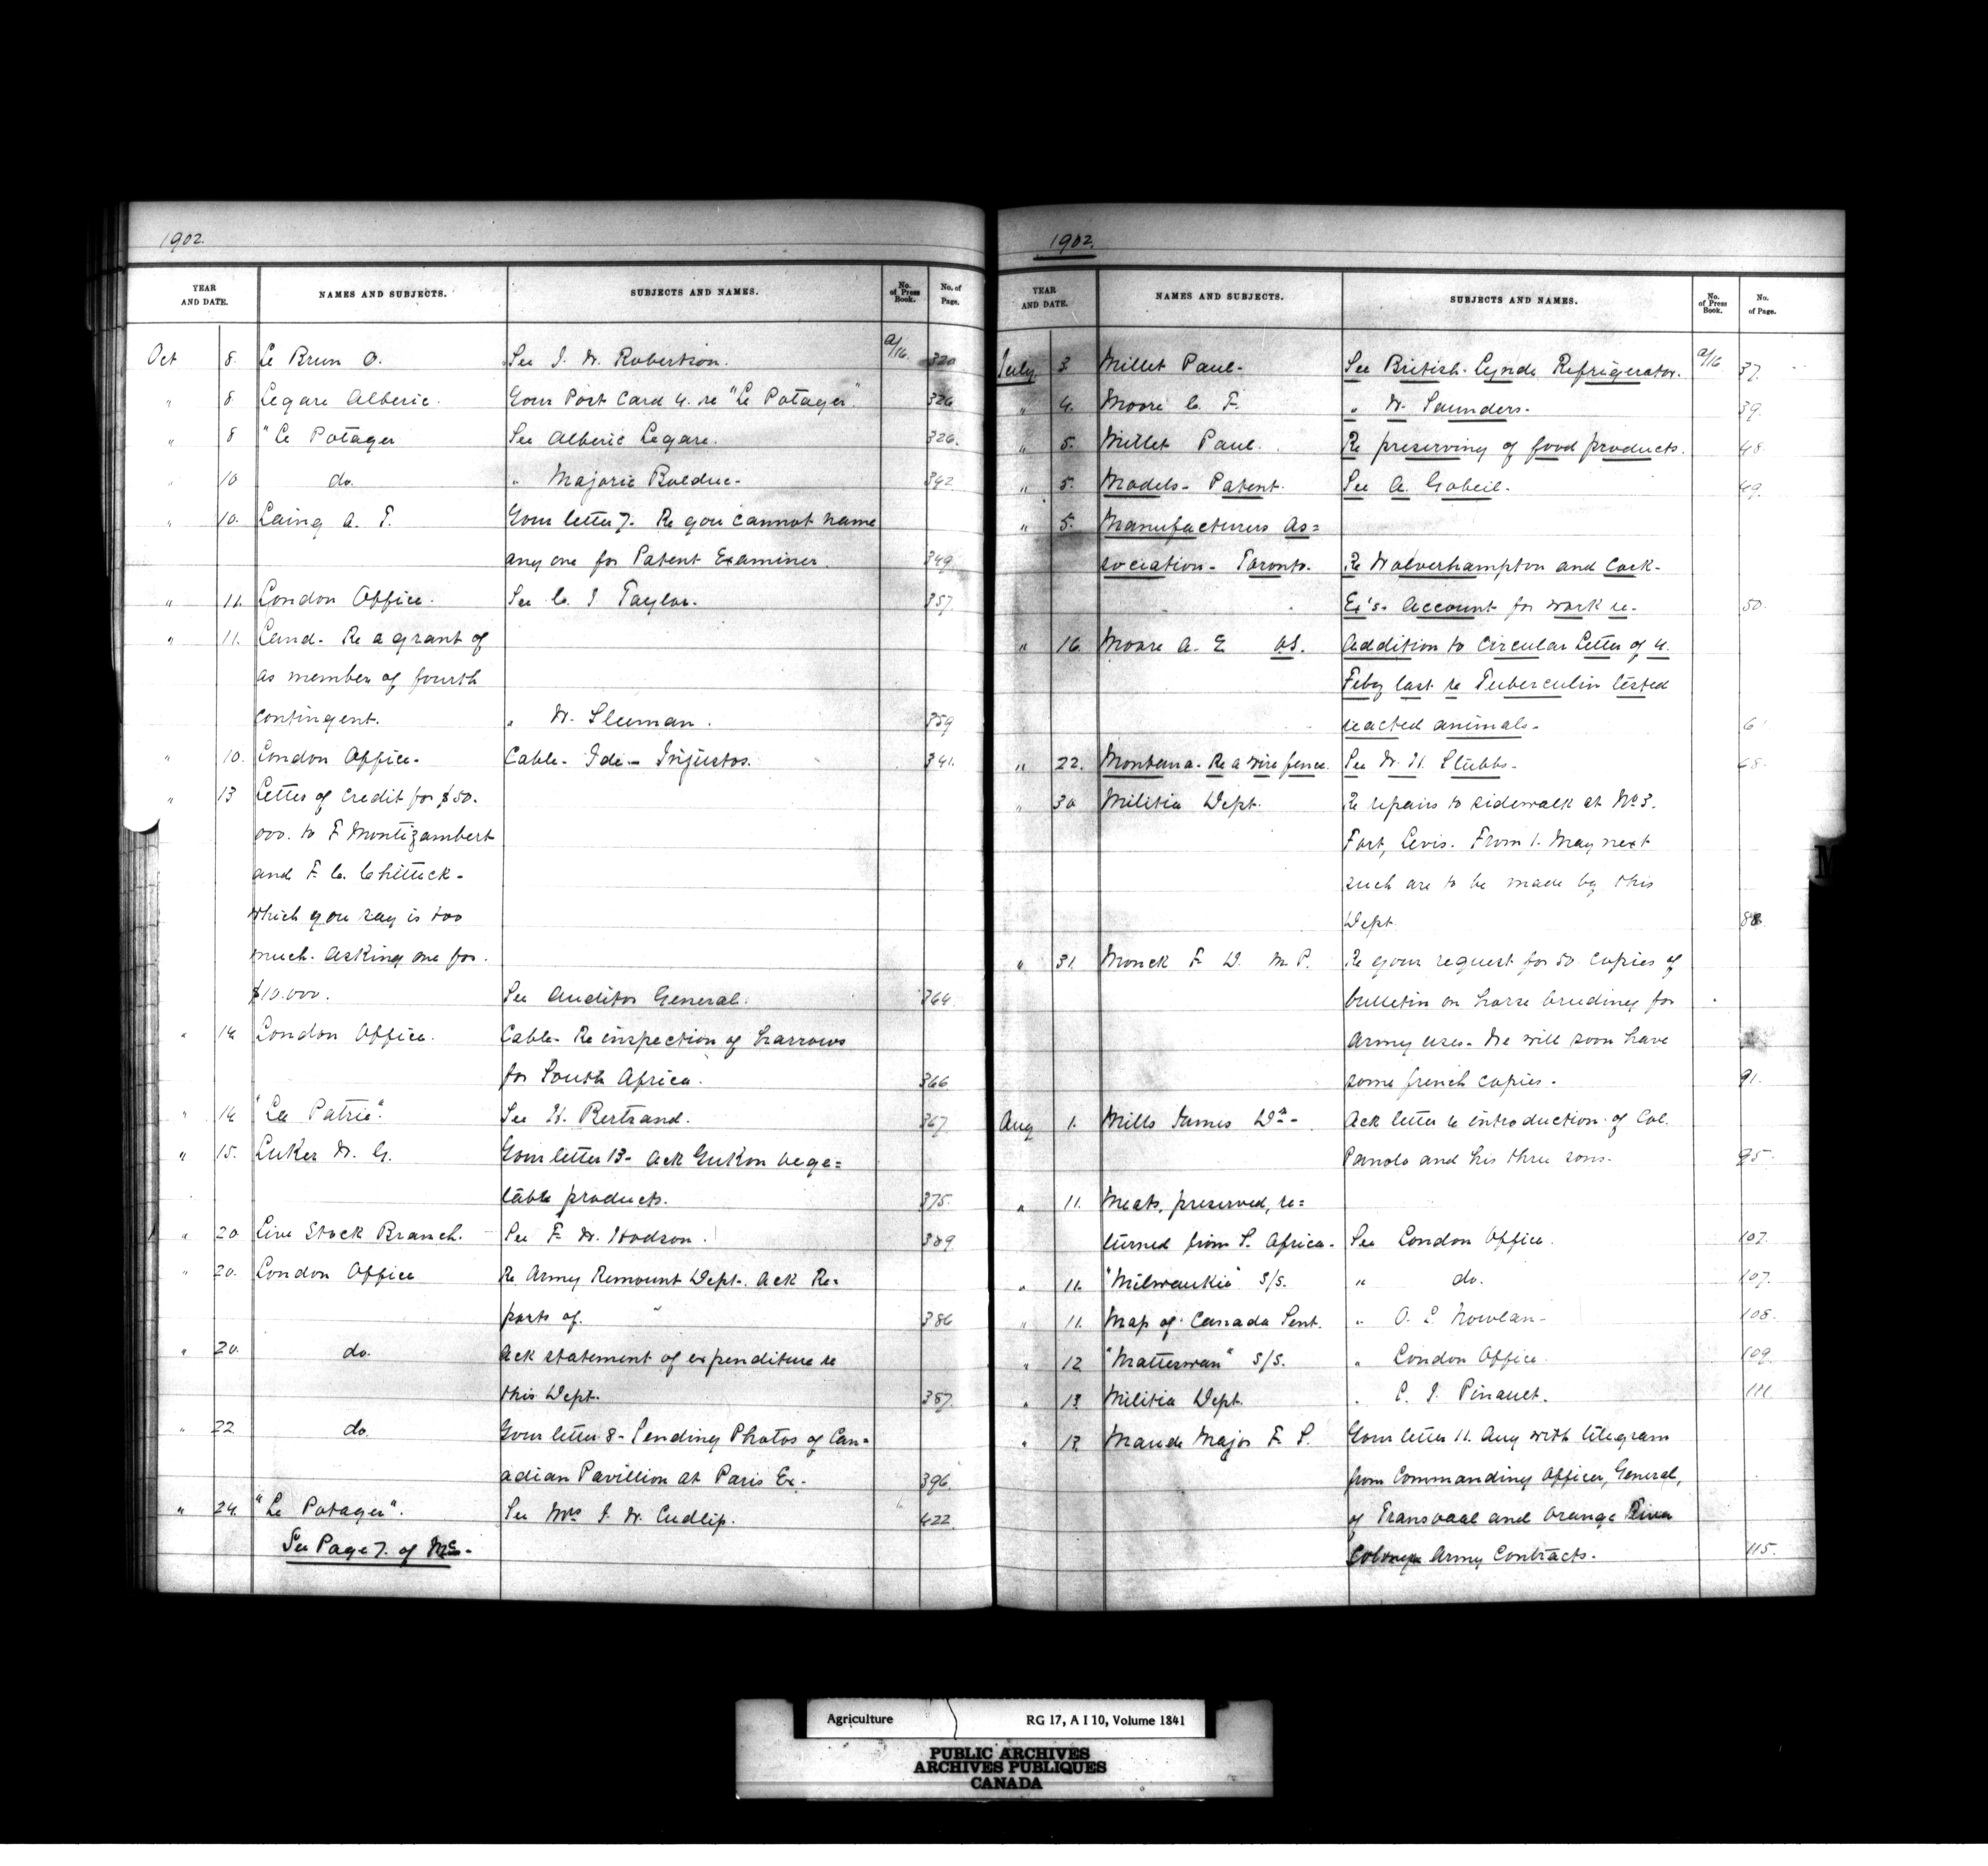 1902.
YEAR AND DATE. NAMES AND SUBJECTS. SUBJECTS AND NAMES. No. of Press Book. No. of Page.
Oct 8. Le Brun O. See J. W. Robertson. a/16. 320
" 8. Legare Alberic. Your Post Card 4. re "Le Potager". 326
" 8 "Le Potager See Alberic Legare. 326.
" 10 do. " Majoric Bolduc. 342
" 10. Laing A. T. Your letter 7. Re you cannot name
any one for Patent Examiner. 349.
" 11. London Office. See C. J Taylor. 357.
" 11. Land. Re a grant of
as member of fourth
contingent. " W. Sleeman. 359
" 10. London Office. Cable. Ide - Injustos. 341.
" 13 Letter of Credit for $50.
000. to F Montizambert
and F. C. Chittick.
which you say is too
much. Asking one for.
$10.000. See Auditor General. 364.
" 14 London Office. Cable. Re inspection of harrows
for South Africa. 366.
" 14 "La Patrie". See H. Bertrand. 367.
" 15. Luker W. G. Your letter 13. Ack Yukon vege=
table products. 375.
" 20 Live Stock Branch. See F. W. Hodson. 389.
" 20. London Office Re Army Remount Dept. Ack Re=
ports of. 386
" 20. do. Ack statement of expenditure re
this Dept. 387.
" 22 do. Your letter 8 - Sending Photos of Can=
adian Pavillion at Paris Ex. 396.
" 24. "Le Potager". See Mrs J. W. Cudlip. 422.
See Page 7. of Mc.
1902.
YEAR AND DATE. NAMES AND SUBJECTS. SUBJECTS AND NAMES. No. of Press Book. No. of Page.
July 3 Millet Paul. See British Lynde Refrigerator. a/16. 37.
" 4. Moore C. F. " W. Saunders. 39.
" 5. Millet Paul. Re preserving of food products. 48.
" 5. Models - Patent. See A. Gobeil. 49.
" 5. Manufacturers As=
sociation - Toronto. Re Wolverhampton and Cork
Ex's. Account for work re. 50.
" 16. Moore A. E VS. Addition to Circular Letter of 4.
Feby last re Tuberculin tested
reacted animals. 6
" 22. Montana. Re a wire fence. See W. H. Stubbs. 68.
" 30 Militia Dept. Re repairs to sidewalk at No 3.
Fort, Levis. From 1. May next
such are to be made by this
Dept. 88.
" 31. Monck F. D. M. P. Re your request for 50 copies of
bulletin on horse breeding for
Army uses. We will soon have
some french copies. 91.
Aug 1. Mills James Dr. Ack letter re introduction of Col.
and his three sons. 95.
" 11. Meats, preserved, re=
turned from S. Africa. See London Office. 107.
" 11. "Milwaukie" S/S. " do. 107.
" 11. Map of Canada Sent. " O. L. Nowlan. 108.
" 12 "Matteawan" S/S. " London Office. 109.
" 13 Militia Dept. " Pinault. 111
" 13. Maude Major F. S. Your letter 11. Aug with telegram
from Commanding Officer, General,
of Transvaal and Orange River
Colony Army Contracts. 115.
M
Agriculture RG 17, A I 10, Volume 1841
PUBLIC ARCHIVES
ARCHIVES PUBLIQUES
CANADA